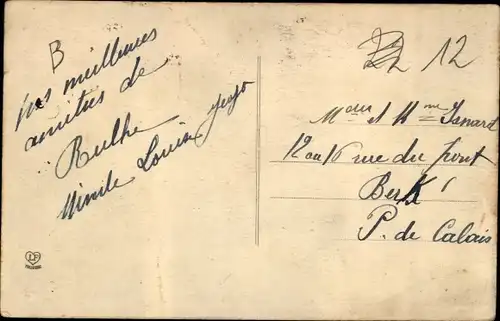 B
Nos meilleures
amitiés de
Rulhe
Mimile Louise Jojo
12
Mr et Mme Isnard
12 ou 16 rue du pont
Berk
P. de Calais